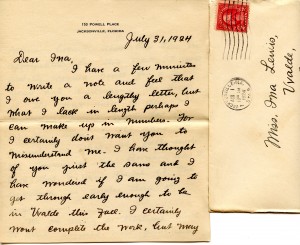 150 POWELL PLACE
JACKSONVILLE, FLORIDA
July 31, 1924
Dear Ina,
I have a few minutes
to write a note and feel that
I owe you a lengthy letter, but
what I lack in length perhaps I
can make up in numbers. For
I certainly dont want you to
misunderstand me. I have thought
of you just the same and I
have wondered if I am going to
get through early enough to be
in Uvalde this Fall. I certainly
wont complete the work, but may
Miss. Ina Lewis,
Uvalde,